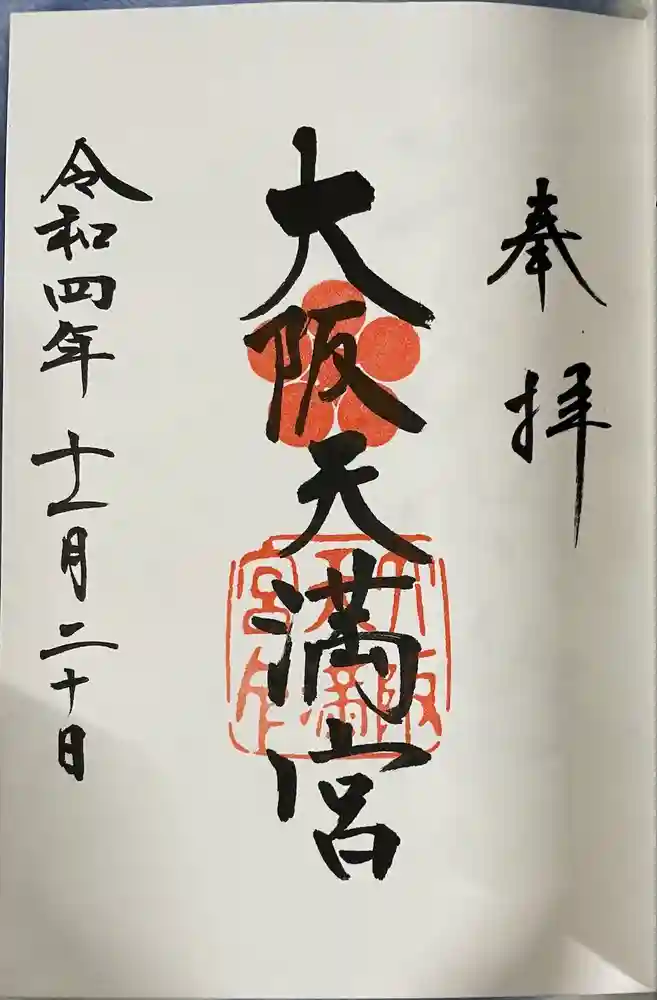 奉拝
大阪天満宮
大阪
天満
宮印
令和四年 十一月 二十日